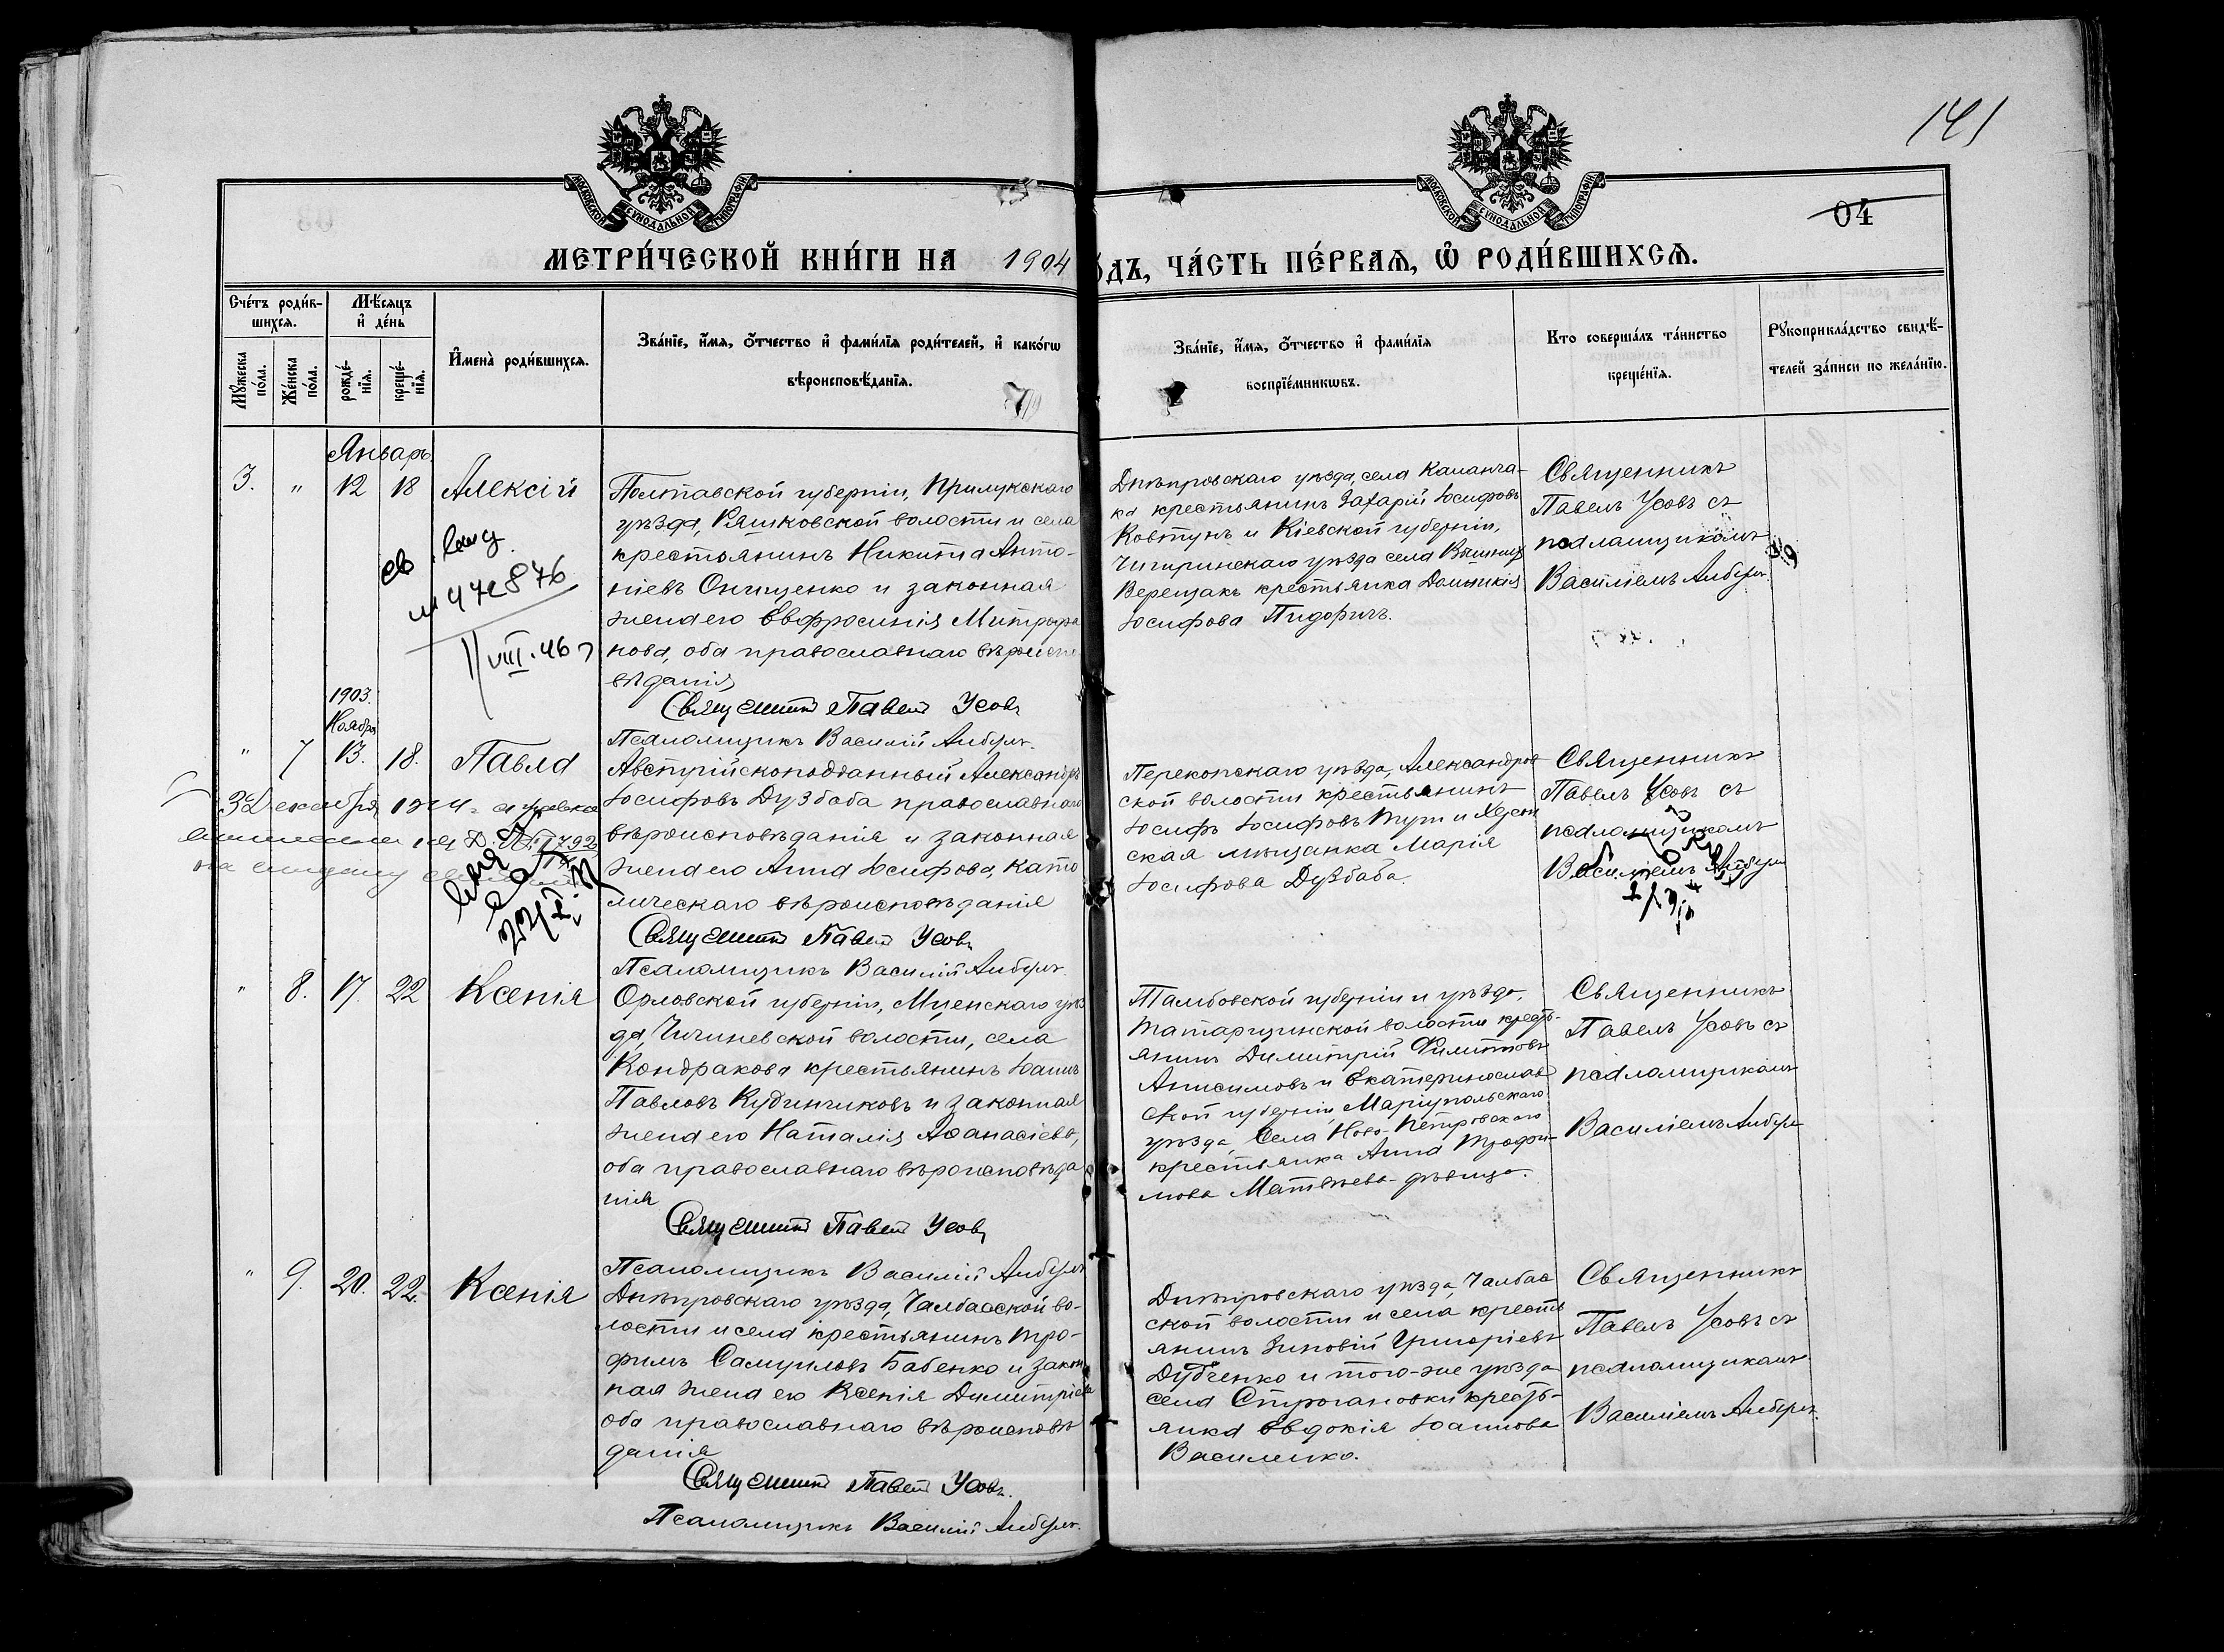 141
04
МОСКОВСКОЙ СѴНОДАЛЬНОЙ ТИПОГРАФІИ
МОСКОВСКОЙ СѴНОДАЛЬНОЙ ТИПОГРАФІИ
МЕТРИ́ЧЕСКОЙ КНИ́ГИ НА 1904
О́ДЪ, ЧА́СТЬ ПЕ́РВАѦ, Ѡ҆ РОДИ́ВШИХСѦ.
Сче́тъ роди́в-
шихсѧ.
Мѣ́сѧцъ
и҆ де́нь
Мꙋ́жеска
по́ла.
Же́нска
по́ла.
рожде́-
нїѧ.
креще́-
нїѧ.
И҆мена̀ роди́вшихсѧ.
Зва́нїе, и҆́мѧ, ѻ҆́тчество и҆ фами́лїѧ роди́телей, и҆ како́гѡ
вѣроисповѣ́данїѧ.
Зва́нїе, и҆́мѧ, ѻ҆́тчество и҆ фами́лїѧ
воспрїе́мникѡвъ.
Кто соверша́лъ та́инство
креще́нїѧ.
Рꙋкоприкла́дство свидѣ́-
телей за́писи по жела́нїю.
Январь.
3. " 12 18 Алексій
Полтавской губерніи, Прилукскаго
уѣзда, Ряшковской волости и села
крестьянинъ Никита Анто-
ніевъ Онищенко и законная
жена его Евфросинія Митрофа
нова, оба православнаго вѣроиспо
вѣданія
Священникъ Павелъ Усовъ
Псаломщикъ Василій
Днѣпровскаго уѣзда, села Каланча-
ка крестьянинъ Захарій Іосифовъ
Ковтунъ и Кіевской губерніи,
Чигиринскаго уѣзда села Вышнихъ
Верещакъ крестьянка Домникія
Іосифова Пидоричъ.
Священникъ
Павелъ Усовъ съ
псаломщикомъ
Василіемъ
472876
VIII. 46
1903.
Ноябрь
" 7 13. 18. Павла
Австрійскоподданный Александръ
Іосифовъ Дузбаба православнаго
вѣроисповѣданія и законная
жена его Анна Іосифова, като
лическаго вѣроисповѣданія
Священникъ Павелъ Усовъ
Псаломщикъ Василій
Перекопскаго уѣзда, Александров
ской волости крестьянинъ
Іосифъ Іосифовъ Тут и Херсон
ская мѣщанка Марія
Іосифова Дузбаба.
Священникъ
Павелъ Усовъ съ
псаломщикомъ
Василіемъ
" 8. 17. 22 Ксенія
Орловской губерніи, Мценскаго уѣз
да, Чичиневской волости, села
Кондракова крестьянинъ Іоаннъ
Павловъ Кудинчиковъ и законная
жена его Наталія Аѳанасіева,
оба православнаго вѣроисповѣда
нія
Священникъ Павелъ Усовъ
Псаломщикъ Василій
Тамбовской губерніи и уѣзда,
Татарщинской волости кресть-
янинъ Димитрій Филипповъ
Анисимовъ и Екатеринослав
ской губерніи, Маріупольскаго
уѣзда, села Ново-Петровскаго
крестьянка Анна Трофи-
мова Матвѣева-дѣвица.
Священникъ
Павелъ Усовъ съ
псаломщикомъ
Василіемъ
" 9. 20. 22. Ксенія
Днѣпровскаго уѣзда, Чалбасской во-
лости и села крестьянинъ Тро-
фимъ Самуиловъ Бабенко и закон
ная жена его Ксенія Димитріева
оба православнаго вѣроисповѣ
данія
Священникъ Павелъ Усовъ.
Псаломщикъ Василій
Днѣпровскаго уѣзда, Чалбас
ской волости и села кресть
янинъ Зиновій Григоріевъ
Дубченко и того-же уѣзда
села Строгановки кресть-
янка Евдокія Іоаннова
Василенко.
Священникъ
Павелъ Усовъ съ
псаломщикомъ
Василіемъ